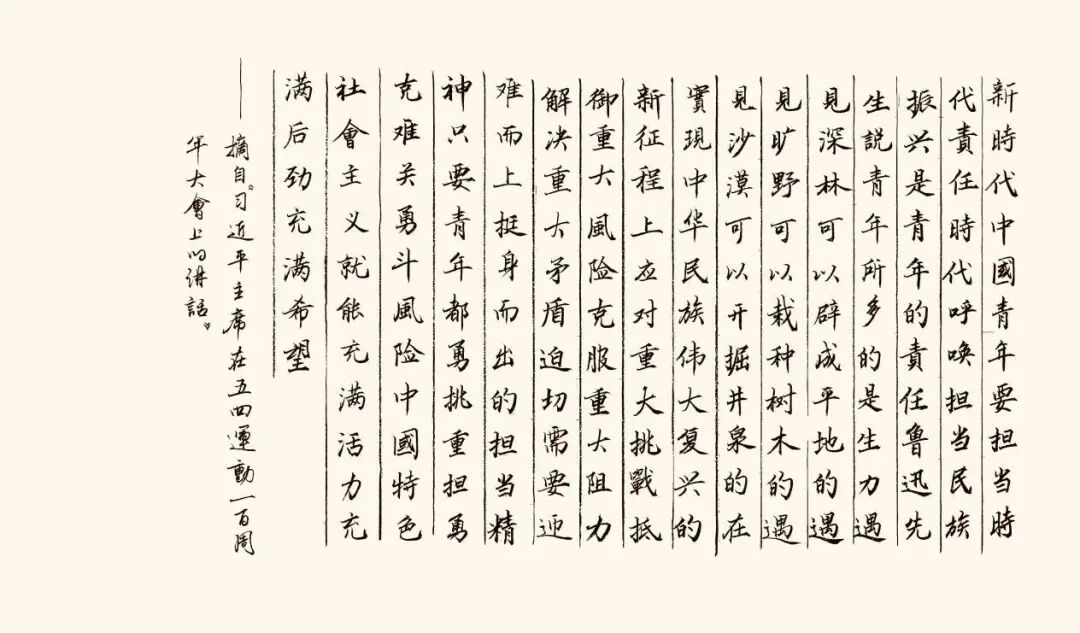 新時代中國青年要担当時
代責任時代呼唤担当民族
振兴是青年的責任鲁迅先
生説青年所多的是生力遇
見深林可以辟成平地的遇
見旷野可以栽种树木的遇
見沙漠可以开掘井泉的在
實現中华民族伟大复兴的
新征程上应对重大挑戰抵
御重大風险克服重大阻力
解决重大矛盾迫切需要迎
难而上挺身而出的担当精
神只要青年都勇挑重担勇
克难关勇斗風险中國特色
社會主义就能充满活力充
满后劲充满希望
——摘自《习近平主席在五四運動一百周
年大會上的讲話》